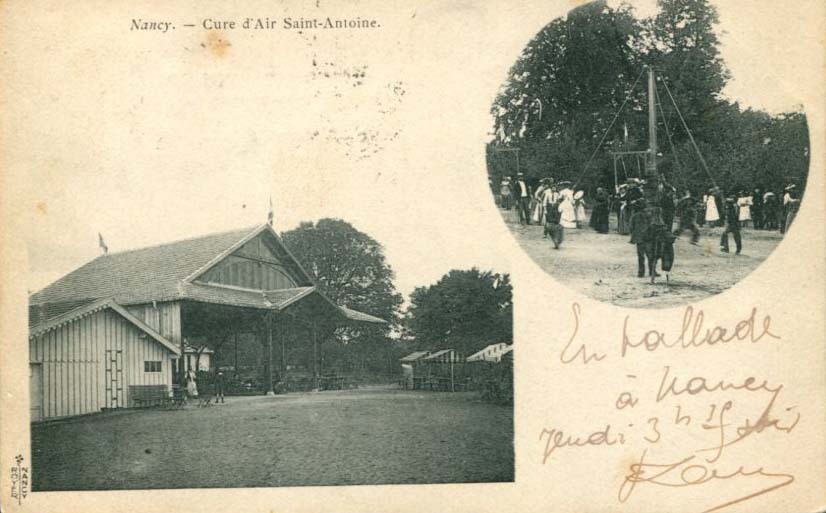 Nancy. — Cure d'Air Saint-Antoine.
En ballade
à Nancy
jeudi 3h 1/2 soir
ROYER
NANCY